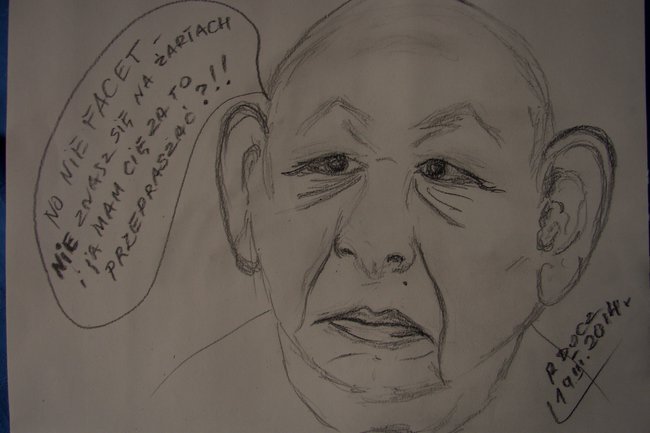 NO NIE FACET -
NIE ZNASZ SIĘ NA ŻARTACH
I JA MAM CIĘ ZA TO
PRZEPRASZAĆ?!!
R DOCZ
19 III. 2014r